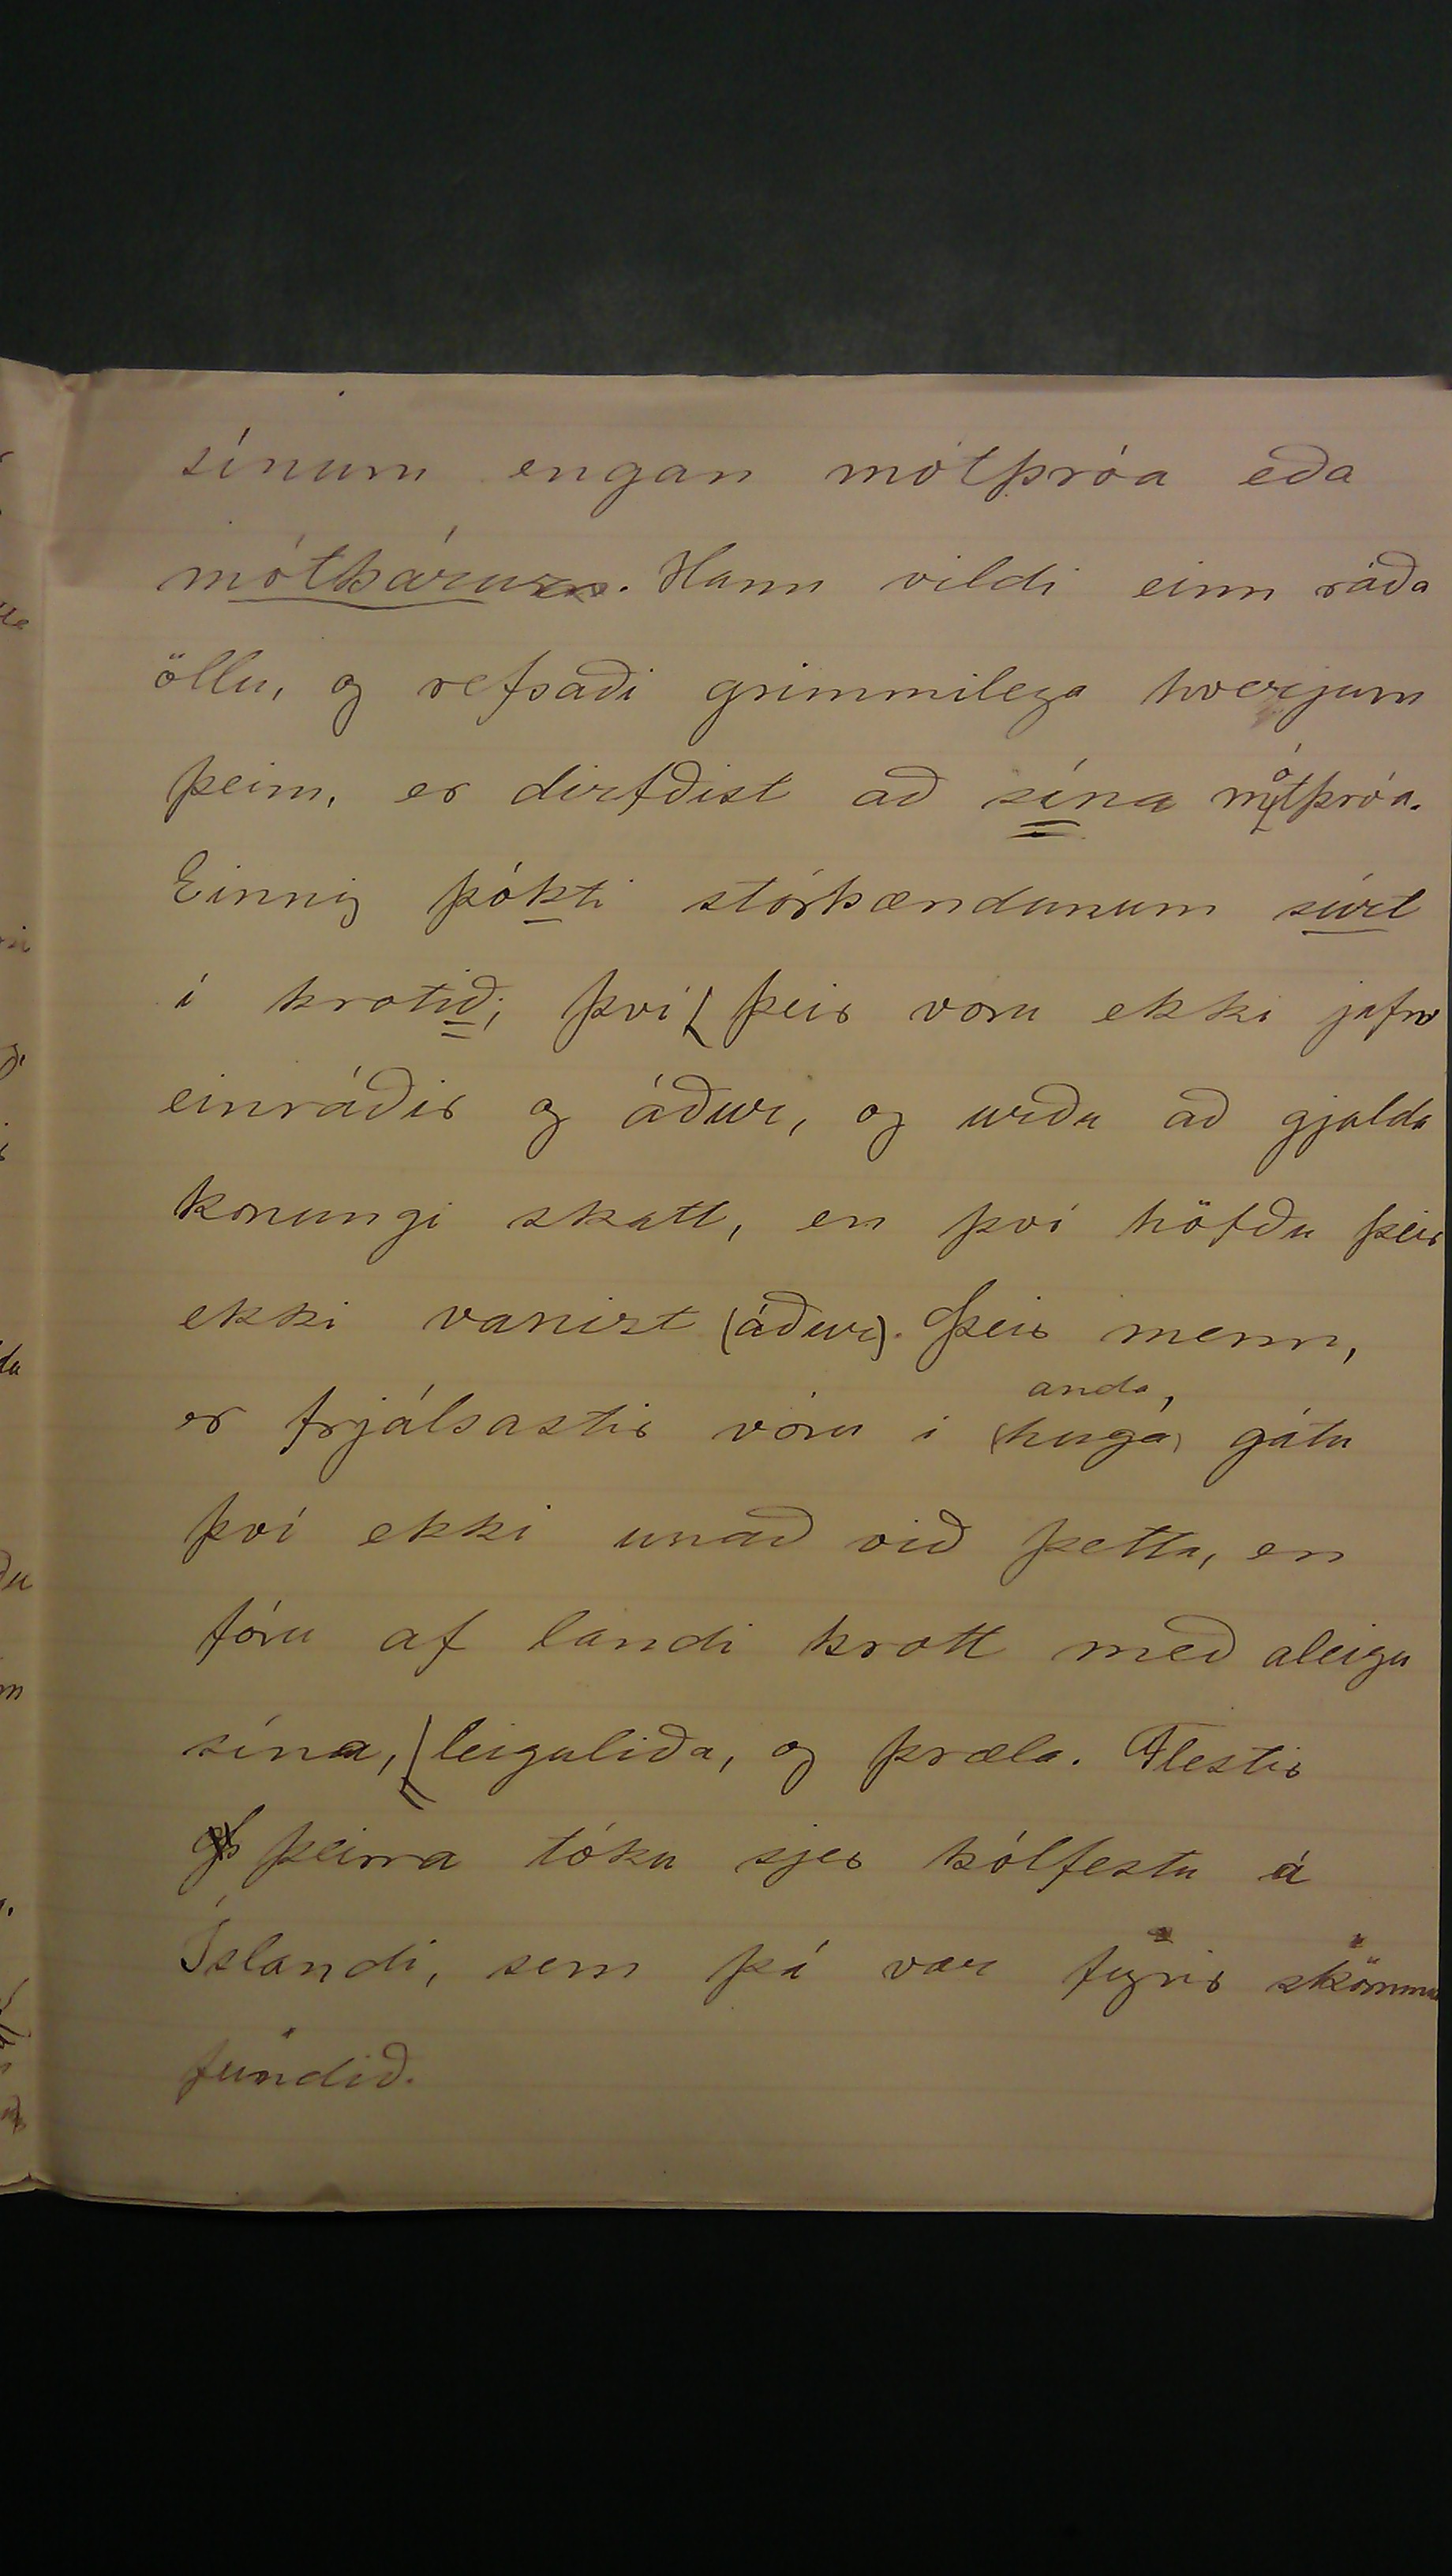 sínum engan mótþróa eða
mótbárum. Hann vildi einn ráða
öllu, og refsaði grimmilega hverjum
þeim, er dirfðist að sína mótþróa.
Einnig þókti stórbændunum súrt
í brotið; því þeir voru ekki jafn
einráðir og áður, og urðu að gjalda
konungi skatt, en því höfðu þeir
ekki vanizt (áður). Þeir menn,
anda,
er frjálsastir vóru í (huga) gátu
því ekki unað við þetta, en
fóru af landi brott með aleigu
sína, leiguliða, og þræla. Flestir
þeirra tóku sjer bólfestu á
Íslandi, sem þá var fyrir skömmu
fundið.